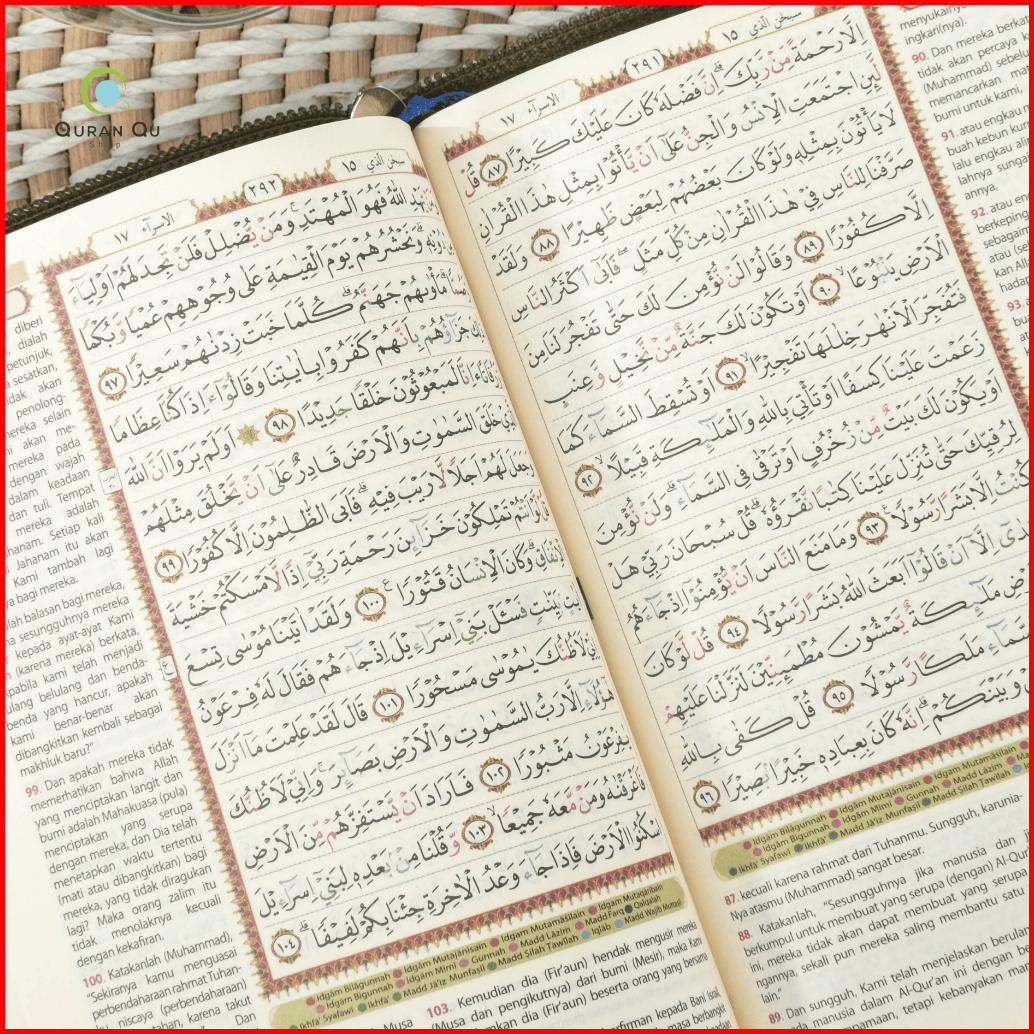 QURAN QU
SHOP
سبحن الذي ١٥
٢٩١
الاسرآء ١٧
اِلَّا رَحْمَةً مِّنْ رَّبِّكَۗ اِنَّ فَضْلَهٗ كَانَ عَلَيْكَ كَبِيْرًا ٨٧ قُلْ
لَّىِٕنِ اجْتَمَعَتِ الْاِنْسُ وَالْجِنُّ عَلٰٓى اَنْ يَّأْتُوْا بِمِثْلِ هٰذَا الْقُرْاٰنِ
لَا يَأْتُوْنَ بِمِثْلِهٖ وَلَوْ كَانَ بَعْضُهُمْ لِبَعْضٍ ظَهِيْرًا ٨٨ وَلَقَدْ
صَرَّفْنَا لِلنَّاسِ فِيْ هٰذَا الْقُرْاٰنِ مِنْ كُلِّ مَثَلٍۖ فَاَبٰٓى اَكْثَرُ النَّاسِ
اِلَّا كُفُوْرًا ٨٩ وَقَالُوْا لَنْ نُّؤْمِنَ لَكَ حَتّٰى تَفْجُرَ لَنَا مِنَ
الْاَرْضِ يَنْۢبُوْعًا ٩٠ اَوْ تَكُوْنَ لَكَ جَنَّةٌ مِّنْ نَّخِيْلٍ وَّعِنَبٍ
فَتُفَجِّرَ الْاَنْهٰرَ خِلٰلَهَا تَفْجِيْرًا ٩١ اَوْ تُسْقِطَ السَّمَاۤءَ كَمَا
زَعَمْتَ عَلَيْنَا كِسَفًا اَوْ تَأْتِيَ بِاللّٰهِ وَالْمَلٰۤىِٕكَةِ قَبِيْلًا ٩٢
اَوْ يَكُوْنَ لَكَ بَيْتٌ مِّنْ زُخْرُفٍ اَوْ تَرْقٰى فِى السَّمَاۤءِ وَلَنْ نُّؤْمِنَ
لِرُقِيِّكَ حَتّٰى تُنَزِّلَ عَلَيْنَا كِتٰبًا نَّقْرَؤُهٗۗ قُلْ سُبْحَانَ رَبِّيْ هَلْ
كُنْتُ اِلَّا بَشَرًا رَّسُوْلًا ٩٣ وَمَا مَنَعَ النَّاسَ اَنْ يُّؤْمِنُوْٓا اِذْ جَاۤءَهُمُ
اِلَّآ اَنْ قَالُوْٓا اَبَعَثَ اللّٰهُ بَشَرًا رَّسُوْلًا ٩٤ قُلْ لَّوْ كَانَ
مَلٰۤىِٕكَةٌ يَّمْشُوْنَ مُطْمَىِٕنِّيْنَ لَنَزَّلْنَا عَلَيْهِمْ
مَلَكًا رَّسُوْلًا ٩٥ قُلْ كَفٰى بِاللّٰهِ
وَبَيْنَكُمْۗ اِنَّهٗ كَانَ بِعِبَادِهٖ خَبِيْرًاۢ بَصِيْرًا ٩٦
Idgām Bilāgunnah Idgām Mutajānisain
Idgām Bigunnah Idgām Mīmī Gunnah Madd Lāzim
Ikhfā' Syafawī Ikhfā' Madd Jā'iz Munfaṣil Madd Silah Ṭawīlah
87. kecuali karena rahmat dari Tuhanmu. Sungguh, karunia-
Nya atasmu (Muhammad) sangat besar.
88. Katakanlah, "Sesungguhnya jika manusia dan
berkumpul untuk membuat yang serupa (dengan) Al-Qur'an
ini, mereka tidak akan dapat membuat yang serupa
ngannya, sekali pun mereka saling membantu satu
lain."
89. Dan sungguh, Kami telah menjelaskan berulang
manusia dalam Al-Qur'an ini dengan
tetapi kebanyakan
menyukainya
ingkari(nya).
90. Dan mereka berkata
tidak akan percaya
(Muhammad)
memancarkan mata
bumi untuk kami,
91. atau engkau
buah kebun
lalu engkau
lahnya
annya,
92. atau
berkeping
sebagaimana
atau
kan
hadapan
93.
سبحن الذي ١٥
٢٩٢
الاسرآء ١٧
يَّهْدِ اللّٰهُ فَهُوَ الْمُهْتَدِۚ وَمَنْ يُّضْلِلْ فَلَنْ تَجِدَ لَهُمْ اَوْلِيَاۤءَ
وَنَحْشُرُهُمْ يَوْمَ الْقِيٰمَةِ عَلٰى وُجُوْهِهِمْ عُمْيًا وَّبُكْمًا
مَأْوٰىهُمْ جَهَنَّمُۗ كُلَّمَا خَبَتْ زِدْنٰهُمْ سَعِيْرًا ٩٧
جَزَاۤؤُهُمْ بِاَنَّهُمْ كَفَرُوْا بِاٰيٰتِنَا وَقَالُوْٓا ءَاِذَا كُنَّا عِظَامًا
ءَاِنَّا لَمَبْعُوْثُوْنَ خَلْقًا جَدِيْدًا ٩٨ اَوَلَمْ يَرَوْا اَنَّ اللّٰهَ
خَلَقَ السَّمٰوٰتِ وَالْاَرْضَ قَادِرٌ عَلٰٓى اَنْ يَّخْلُقَ مِثْلَهُمْ
وَجَعَلَ لَهُمْ اَجَلًا لَّا رَيْبَ فِيْهِۗ فَاَبَى الظّٰلِمُوْنَ اِلَّا كُفُوْرًا ٩٩
لَّوْ اَنْتُمْ تَمْلِكُوْنَ خَزَاۤىِٕنَ رَحْمَةِ رَبِّيْٓ اِذًا لَّاَمْسَكْتُمْ خَشْيَةَ
الْاِنْفَاقِۗ وَكَانَ الْاِنْسَانُ قَتُوْرًا ١٠٠ وَلَقَدْ اٰتَيْنَا مُوْسٰى تِسْعَ
بَيِّنٰتٍ فَسْـَٔلْ بَنِيْٓ اِسْرَاۤءِيْلَ اِذْ جَاۤءَهُمْ فَقَالَ لَهٗ فِرْعَوْنُ
اِنِّيْ لَاَظُنُّكَ يٰمُوْسٰى مَسْحُوْرًا ١٠١ قَالَ لَقَدْ عَلِمْتَ مَآ اَنْزَلَ
هٰٓؤُلَاۤءِ اِلَّا رَبُّ السَّمٰوٰتِ وَالْاَرْضِ بَصَاۤىِٕرَۚ وَاِنِّيْ لَاَظُنُّكَ
يٰفِرْعَوْنُ مَثْبُوْرًا ١٠٢ فَاَرَادَ اَنْ يَّسْتَفِزَّهُمْ مِّنَ الْاَرْضِ
فَاَغْرَقْنٰهُ وَمَنْ مَّعَهٗ جَمِيْعًا ١٠٣ وَّقُلْنَا مِنْۢ بَعْدِهٖ لِبَنِيْٓ اِسْرَاۤءِيْلَ
اسْكُنُوا الْاَرْضَ فَاِذَا جَاۤءَ وَعْدُ الْاٰخِرَةِ جِئْنَا بِكُمْ لَفِيْفًا ١٠٤
Idgām Bilāgunnah Idgām Mutajānisain Idgam Mutamāṡilain Idgām Mutaqāribain
Idgām Bigunnah Idgām Mīmī Gunnah Madd Lāzim Madd Farq Qalqalah
Ikhfā' Syafawī Ikhfā' Madd Jā'iz Munfaṣil Madd Silah Ṭawīlah Iqlāb Madd Wajib Muttaṣil
diberi
dialah
petunjuk,
sesatkan,
akan
penolong-
mereka selain
akan me-
mereka pada
dengan wajah
dalam keadaan
dan tuli. Tempat
mereka adalah
Jahanam. Setiap kali
Jahanam itu akan
Kami tambah lagi
bagi mereka.
balasan bagi mereka,
sesungguhnya mereka
kepada ayat-ayat Kami
(karena mereka) berkata,
"Apabila kami telah menjadi
tulang belulang dan benda-
benda yang hancur, apakah
kami benar-benar akan
dibangkitkan kembali sebagai
makhluk baru?"
99. Dan apakah mereka tidak
memerhatikan bahwa Allah
yang menciptakan langit dan
bumi adalah Mahakuasa (pula)
menciptakan yang serupa
dengan mereka, dan Dia telah
menetapkan waktu tertentu
(mati atau dibangkitkan) bagi
mereka, yang tidak diragukan
lagi? Maka orang zalim itu
tidak menolaknya kecuali
dengan kekafiran.
100. Katakanlah (Muhammad),
"Sekiranya kamu menguasai
perbendaharaan rahmat Tuhan-
ku, niscaya (perbendaharaan)
tahan, karena takut
Dan
103. Kemudian dia (Fir'aun) hendak mengusir mereka
(Musa dan pengikutnya) dari bumi (Mesir), maka Kami
dia (Fir'aun) beserta orang yang bersama
berfirman kepada Bani